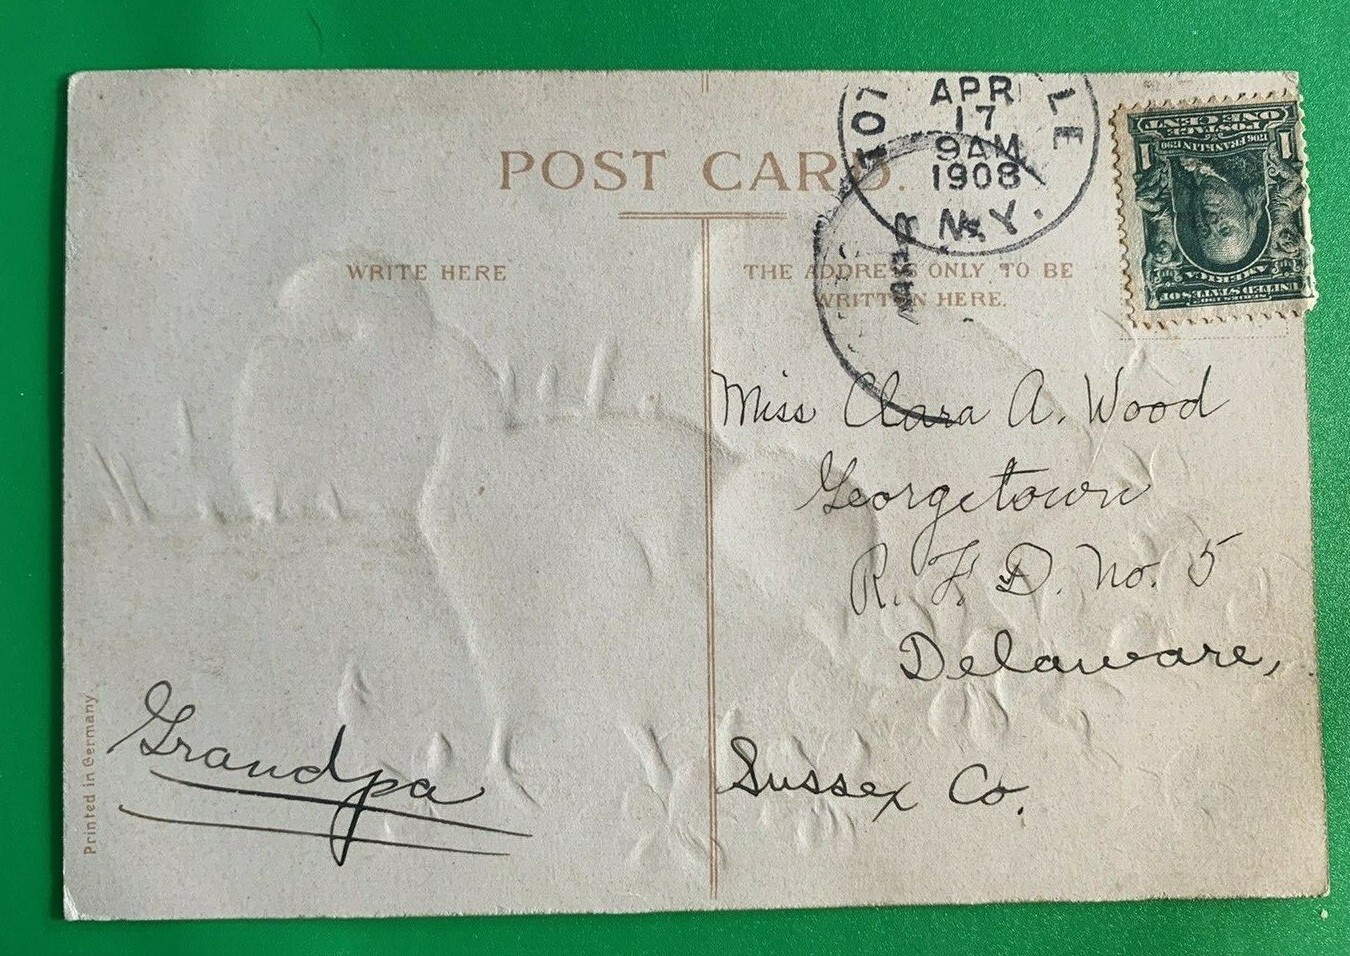 POST CARD.
WRITE HERE
THE ADDRESS ONLY TO BE
WRITTEN HERE.
APR
17
9AM
1908
N.Y.
LE
ONE CENT
POSTAGE
1706 FRANKLIN 1790
1 1
SERIES 1902
UNITED STATES OF
AMERICA
Miss Clara A. Wood
Georgetown
R. F. D. No. 5
Delaware,
Sussex Co.
Grandpa
Printed in Germany